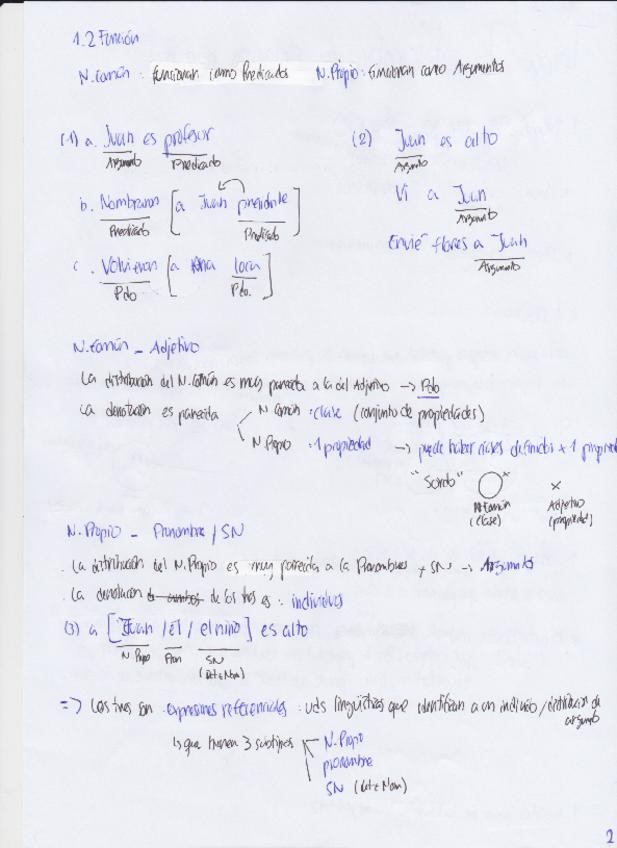 1.2 Función
N. Común : funcionan como Predicados N. Propio : funcionan como Argumentos
(1) a. Juan es profesor
Argumento Predicado
b. Nombraron [a Juan presidente]
Predicado Predicado
c. Volvieron [a Ana loca]
Pdo Pdo.
(2) Juan es alto
Argumento
Vi a Juan
Argumento
Envié flores a Juan
Argumento
N. Común - Adjetivo
La distribución del N. Común es muy parecida a la del Adjetivo → Pdo
La denotación es parecida
N Común : clase (conjunto de propiedades)
N. Propio : 1 propiedad → puede haber clases definidas x 1 propiedad
"Sordo"
N. Común (clase)
x Adjetivo (propiedad)
N. Propio - Pronombre / SN
. La distribución del N. Propio es muy parecida a la Pronombres y SN → Argumentos
. La denotación de los tres es : individuos
(3) a [Juan / él / el niño] es alto
N. Propio Pron SN
(Det + Nom)
=> Los tres son expresiones referenciales : uds lingüísticas que identifican a un individuo / distribución de argumento
que tienen 3 subtipos
N. Propio
pronombre
SN (det + Nom)
2